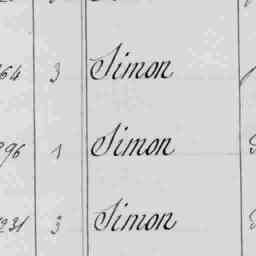 64 3 Simon
96 1 Simon
231 3 Simon